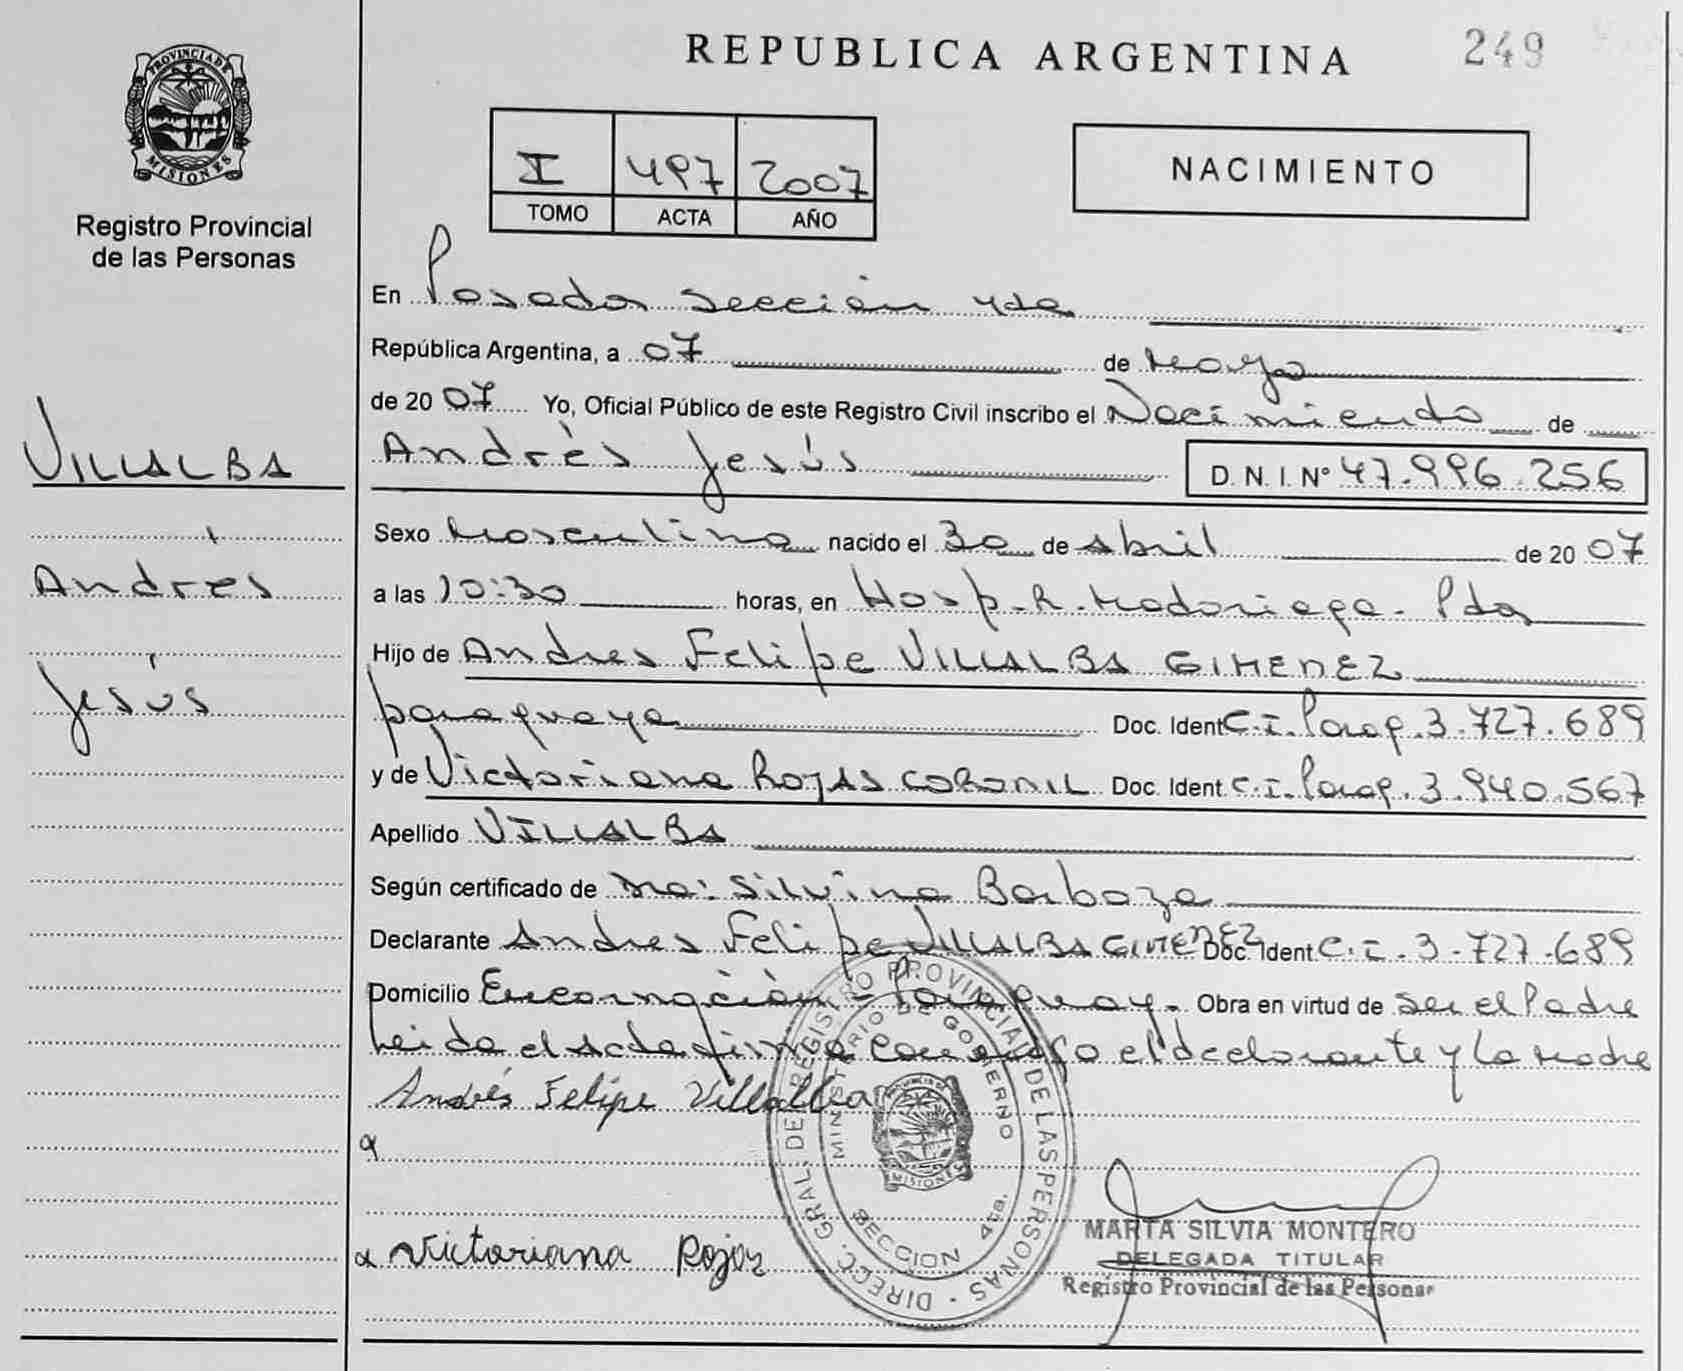 REPUBLICA ARGENTINA 249
PROVINCIA DE MISIONES
Registro Provincial
de las Personas
I 497 2007
TOMO ACTA AÑO
NACIMIENTO
En Posadas sección 4ta
República Argentina, a 07 de Mayo
de 2007 Yo, Oficial Público de este Registro Civil inscribo el Nacimiento de
Andrés Jesús D.N.I. Nº 47.996.256
VILLALBA
Andrés
Jesús
Sexo Masculino nacido el 30 de Abril de 2007
a las 10:30 horas, en Hosp. R. Madariaga - Pdas
Hijo de Andres Felipe VILLALBA GIMENEZ
paraguaya Doc. Ident C.I. Parag. 3.727.689
y de Victoriana ROJAS CORONIL Doc. Ident C.I. Parag. 3.940.567
Apellido VILLALBA
Según certificado de Silvina Barboza
Declarante Andres Felipe VILLALBA GIMENEZ Doc. Ident C.I. 3.727.689
Domicilio Encarnación - Paraguay. Obra en virtud de ser el Padre
Leida el Acta firma conmigo el declarante y la madre
Andrés Felipe Villalba
Victoriana Rojas
DIRECC. GRAL. DE REGISTRO PROVINCIAL DE LAS PERSONAS
MINISTERIO DE GOBIERNO
SECCION 4ta.
MARTA SILVIA MONTERO
DELEGADA TITULAR
Registro Provincial de las Personas